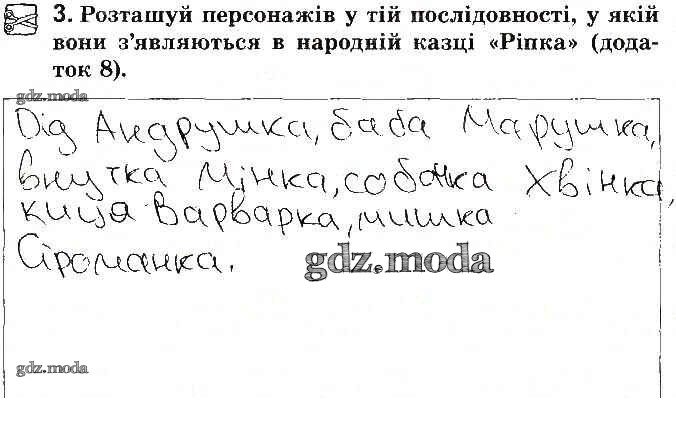 3. Розташуй персонажів у тій послідовності, у якій
вони з’являються в народній казці «Ріпка» (дода-
ток 8).
gdz.moda
Дід Андрушка, баба Марушка,
внучка Мінка, собачка Хвінка,
киця Варварка, мишка
Сіроманка.
gdz.moda
gdz.moda